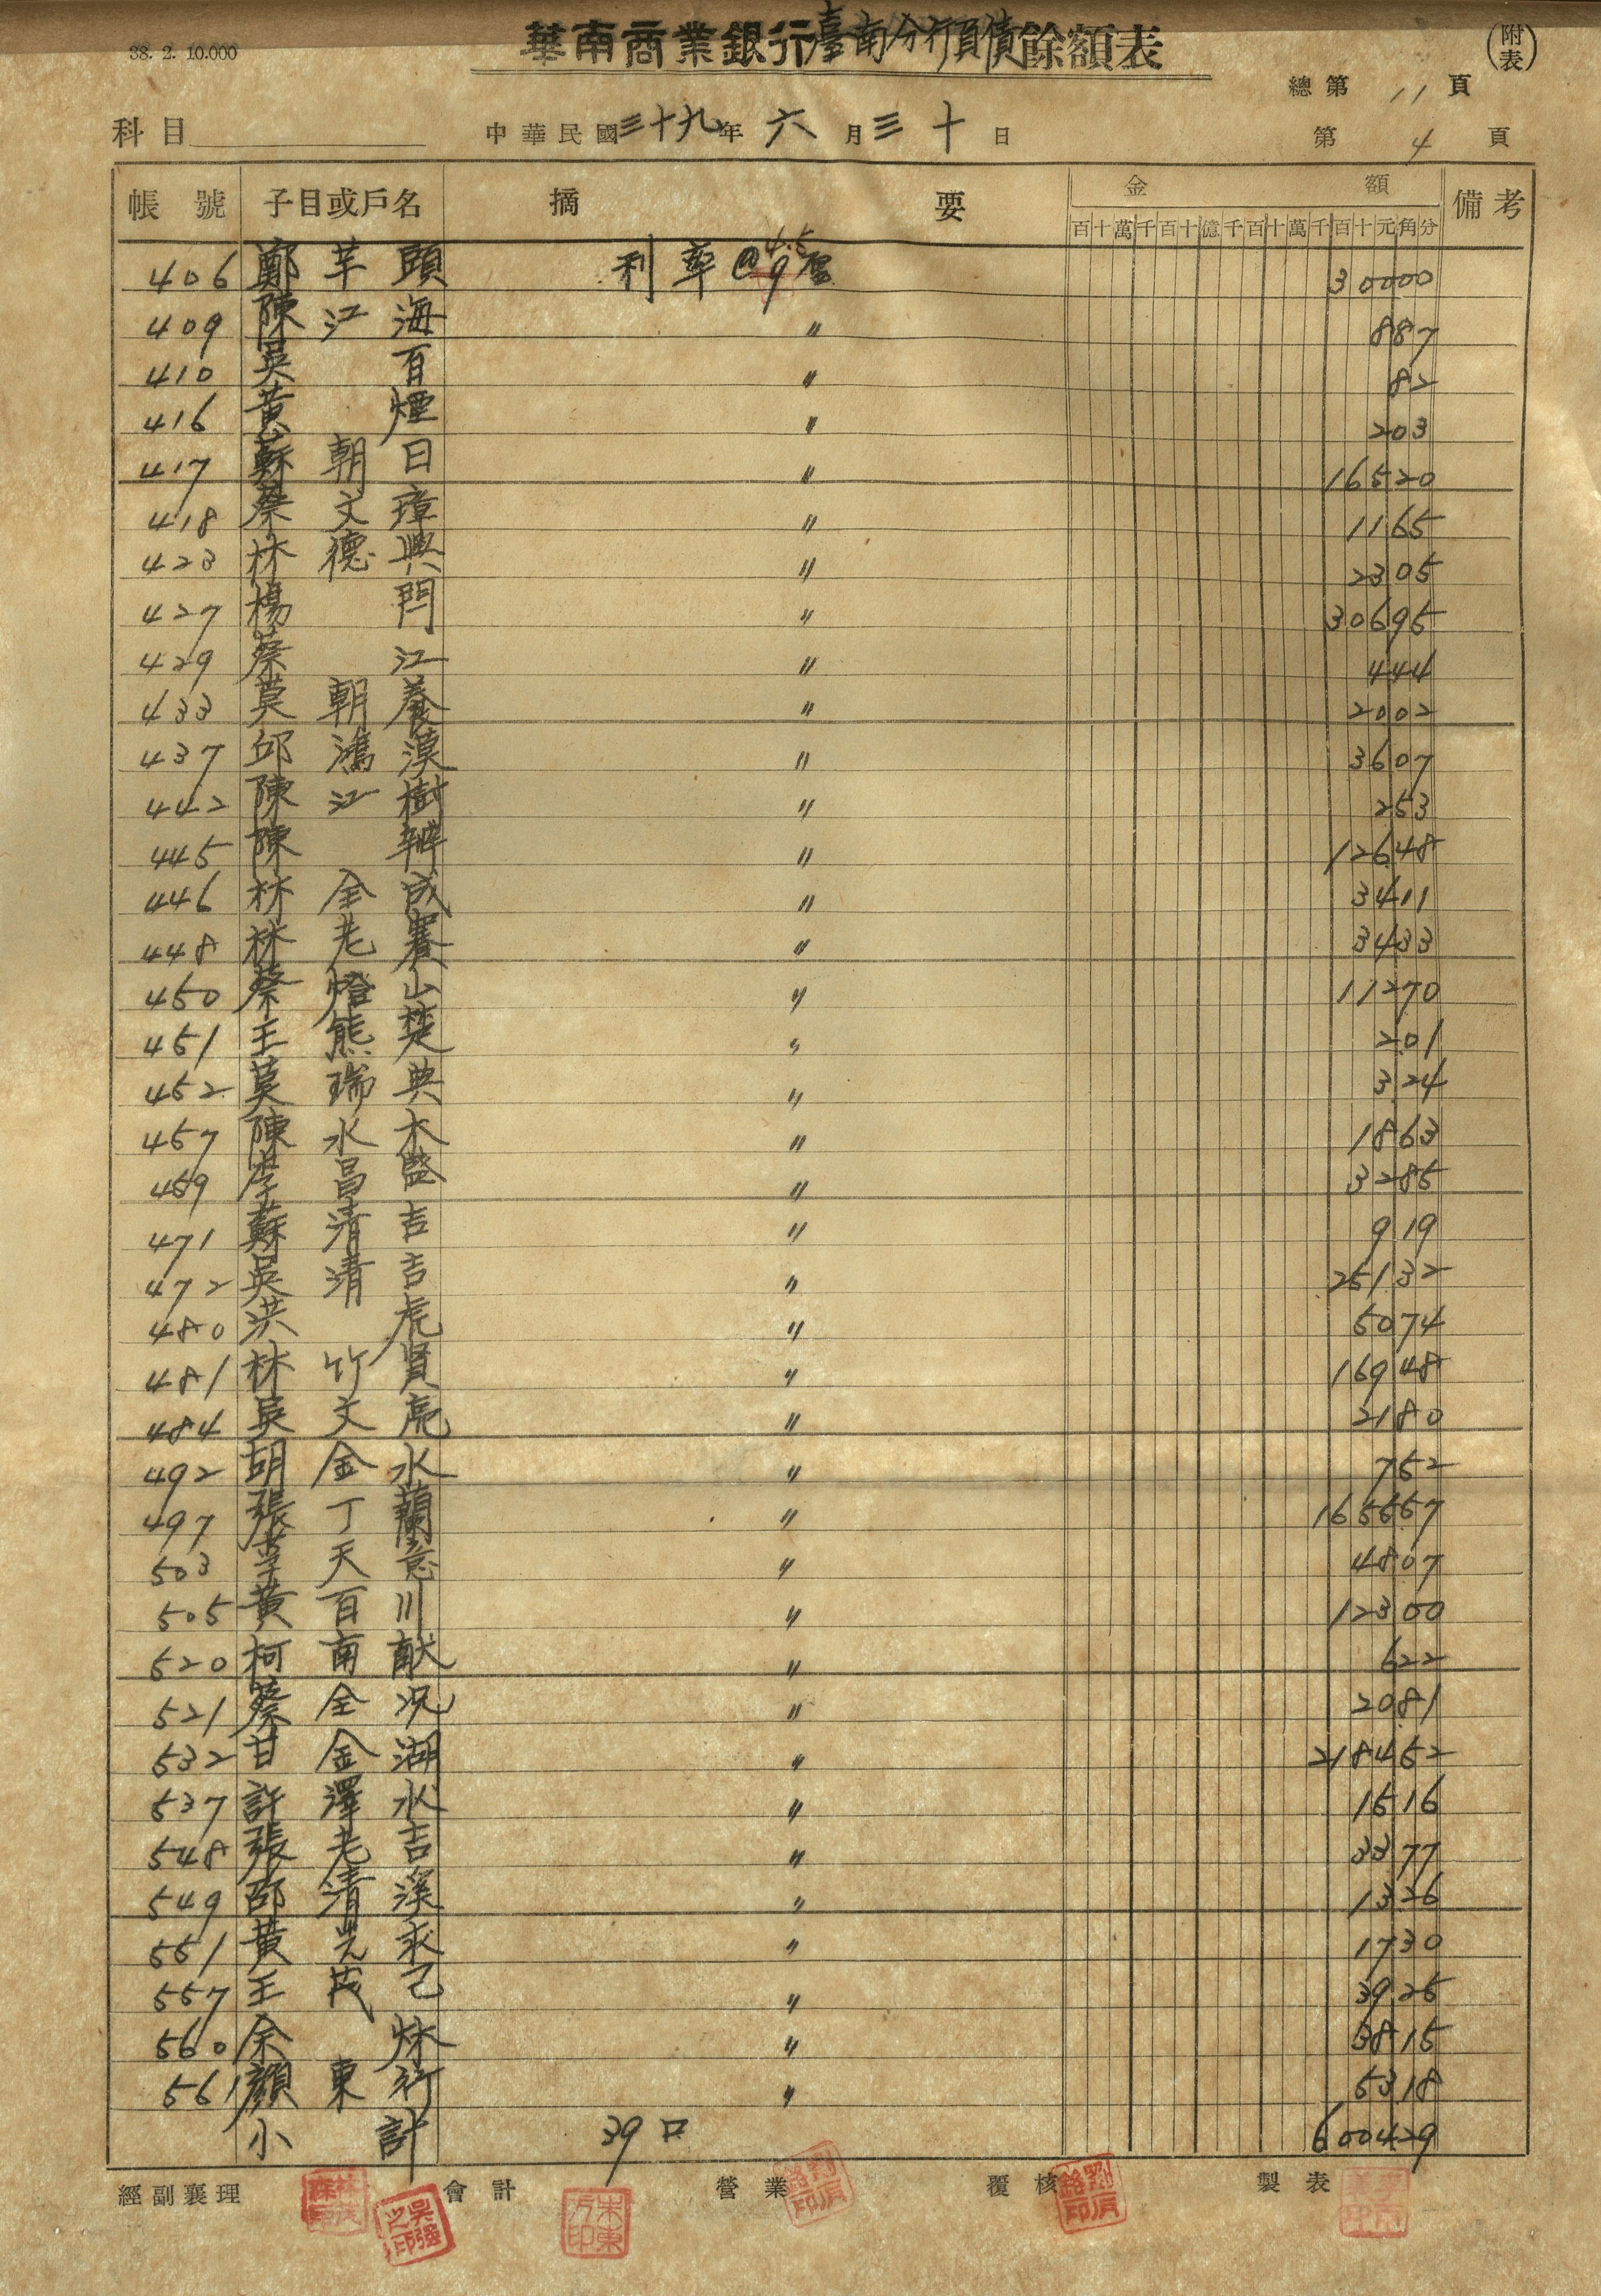 38. 2. 10.000
華南商業銀行臺南分行負債餘額表
(附表)
總第 11 頁
科目 中華民國三十九年六月三十日 第 4 頁
帳號 子目或戶名 摘要 金額 備考
百十萬千百十億千百十萬千百十元角分
406 鄭芋頭 利率@9厘 4.5 30000
409 陳江海 〃 887
410 吳百 〃 82
416 黃煙 〃 203
417 蘇朝日 〃 16520
418 蔡文璋 〃 1165
423 林德興 〃 2305
427 楊閂 〃 30695
429 蔡江 〃 444
433 莫朝養 〃 2002
437 邱鴻漠 〃 3607
442 陳江樹 〃 253
445 陳辦 〃 12648
446 林全成 〃 3411
448 林老賽 〃 3433
450 蔡燈山 〃 11270
451 王熊楚 〃 201
452 莫瑞典 〃 324
457 陳水木 〃 1863
459 李昌盛 〃 3285
471 蘇清吉 〃 919
472 吳清吉 〃 25132
480 洪虎 〃 5074
481 林竹賢 〃 16948
484 吳文虎 〃 2180
492 胡金水 〃 752
497 張丁蘭 〃 165557
503 李天意 〃 4807
505 黃百川 〃 12300
520 柯南献 〃 622
521 蔡全况 〃 2081
532 甘金湖 〃 218452
537 許澤水 〃 1516
548 張老吉 〃 3377
549 邵清溪 〃 1326
551 黃光求 〃 1730
557 王茂己 〃 3925
560 余烌 〃 3815
561 顏東行 〃 5318
小計 39口 600429
經副襄理 會計 營業 覆核 製表